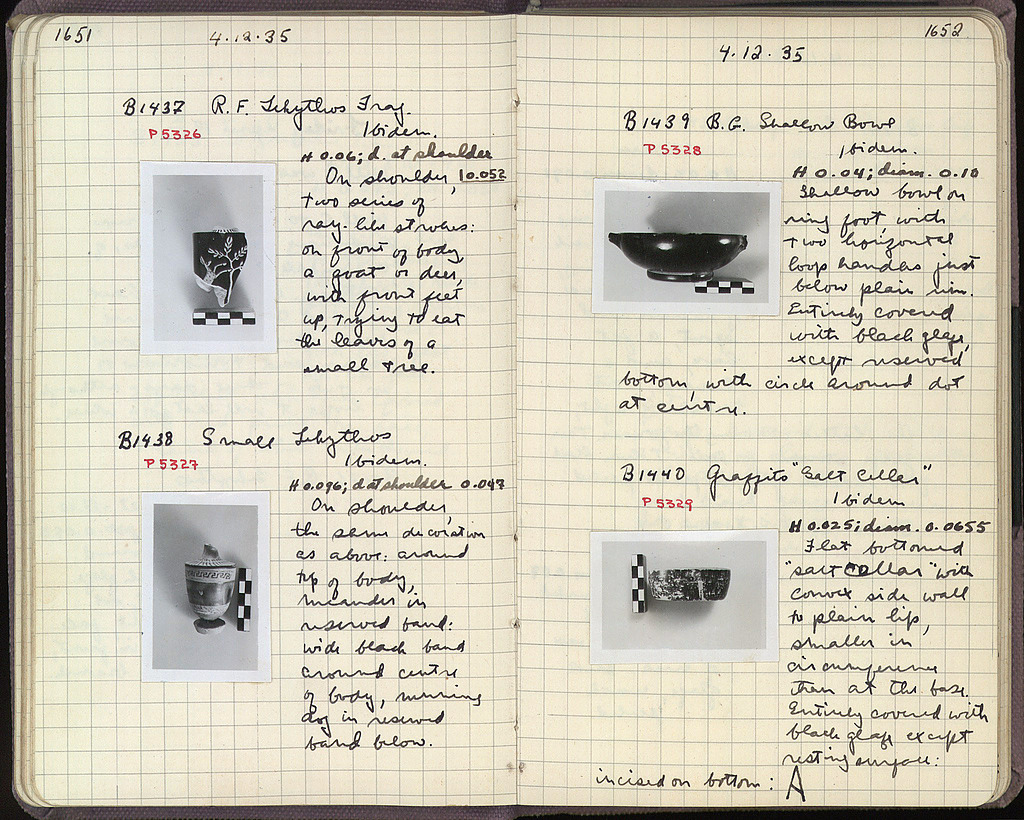 1651
4.12.35
B1437 R.F. Lekythos Frag.
P5326
Ibidem.
H 0.06; d. at shoulder
On shoulder, 0.052
two series of
ray-like strokes:
on front of body,
a goat or deer,
with front feet
up, trying to eat
the leaves of a
small tree.
B1438 Small Lekythos
P5327
Ibidem.
H 0.096; d at shoulder 0.047
On shoulder,
the same decoration
as above: around
top of body,
meander in
reserved band:
wide black band
around centre
of body, running
dog in reserved
band below.
1652
4.12.35
B1439 B.G. Shallow Bowl
P5328
Ibidem.
H 0.04; diam. 0.10
Shallow bowl on
ring foot, with
two horizontal
loop handles just
below plain rim.
Entirely covered
with black glaze,
except reserved
bottom, with circle around dot
at centre.
B1440 Graffito "Salt Cellar"
P5329
Ibidem
H 0.025; diam. 0.0655
Flat bottomed
"salt cellar" with
convex side wall
to plain lip,
smaller in
circumference
than at the base.
Entirely covered with
black glaze except
resting surface:
incised on bottom: A